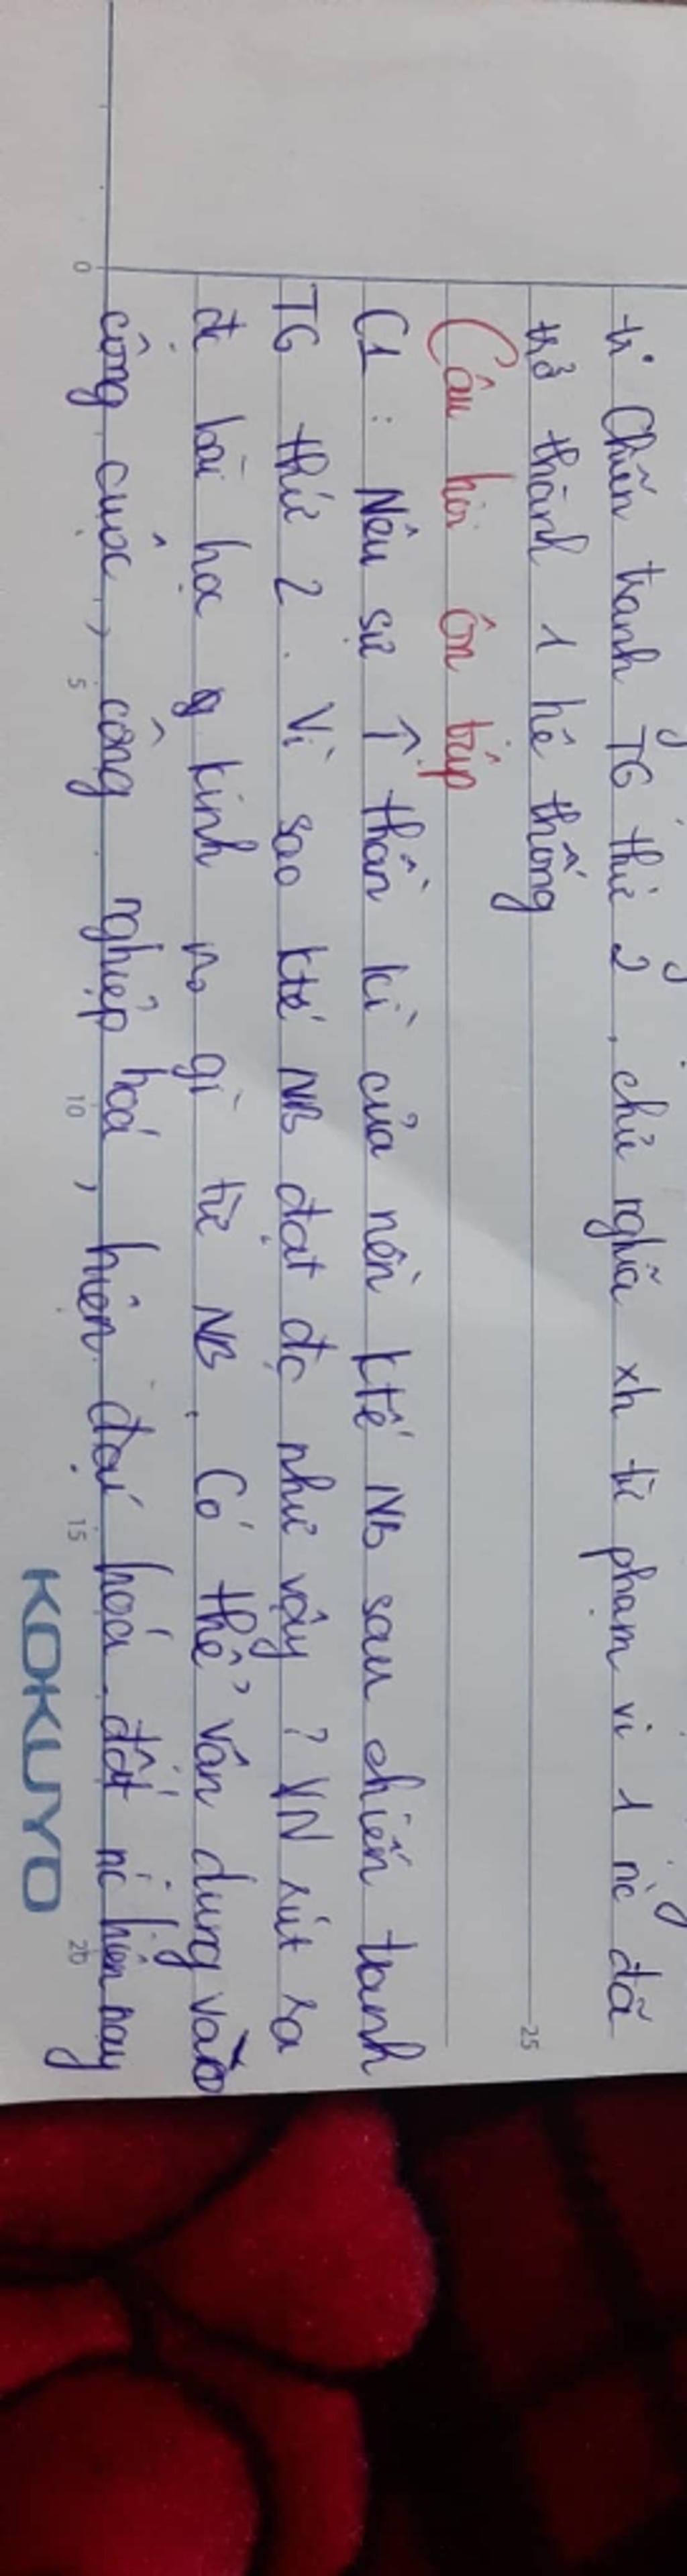 từ Chiến tranh TG thứ 2, chủ nghĩa xh từ phạm vi 1 nc đã
trở thành 1 hệ thống
25
Câu hỏi ôn tập
C1: Nêu sự ↑ thần kì của nền ktế NB sau chiến tranh
TG thứ 2. Vì sao ktế NB đạt đc như vậy? VN rút ra
đc bài học kinh no gì từ NB. Có thể vận dụng vào
công cuộc, công nghiệp hoá, hiện đại hoá đất nc hiện nay
0 5 10 15 20
KOKUYO